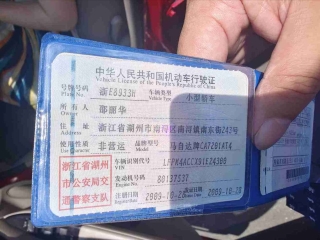 中华人民共和国机动车行驶证
Vehicle License of the People's Republic of China
号牌号码 浙E8933H 车辆类型 小型轿车
Plate No. Vehicle Type
所有人 邵丽华
Owner
住址 浙江省湖州市南浔区南浔镇南东街247号
Address
使用性质 非营运 品牌型号 马自达牌CA7201AT4
Use Character Model
浙江省湖州
市公安局交
通警察支队
车辆识别代号
VIN
发动机号码 80137537
Engine No.
注册日期 2009-10-28 发证日期 2009-10-28
Register Date Issue Date